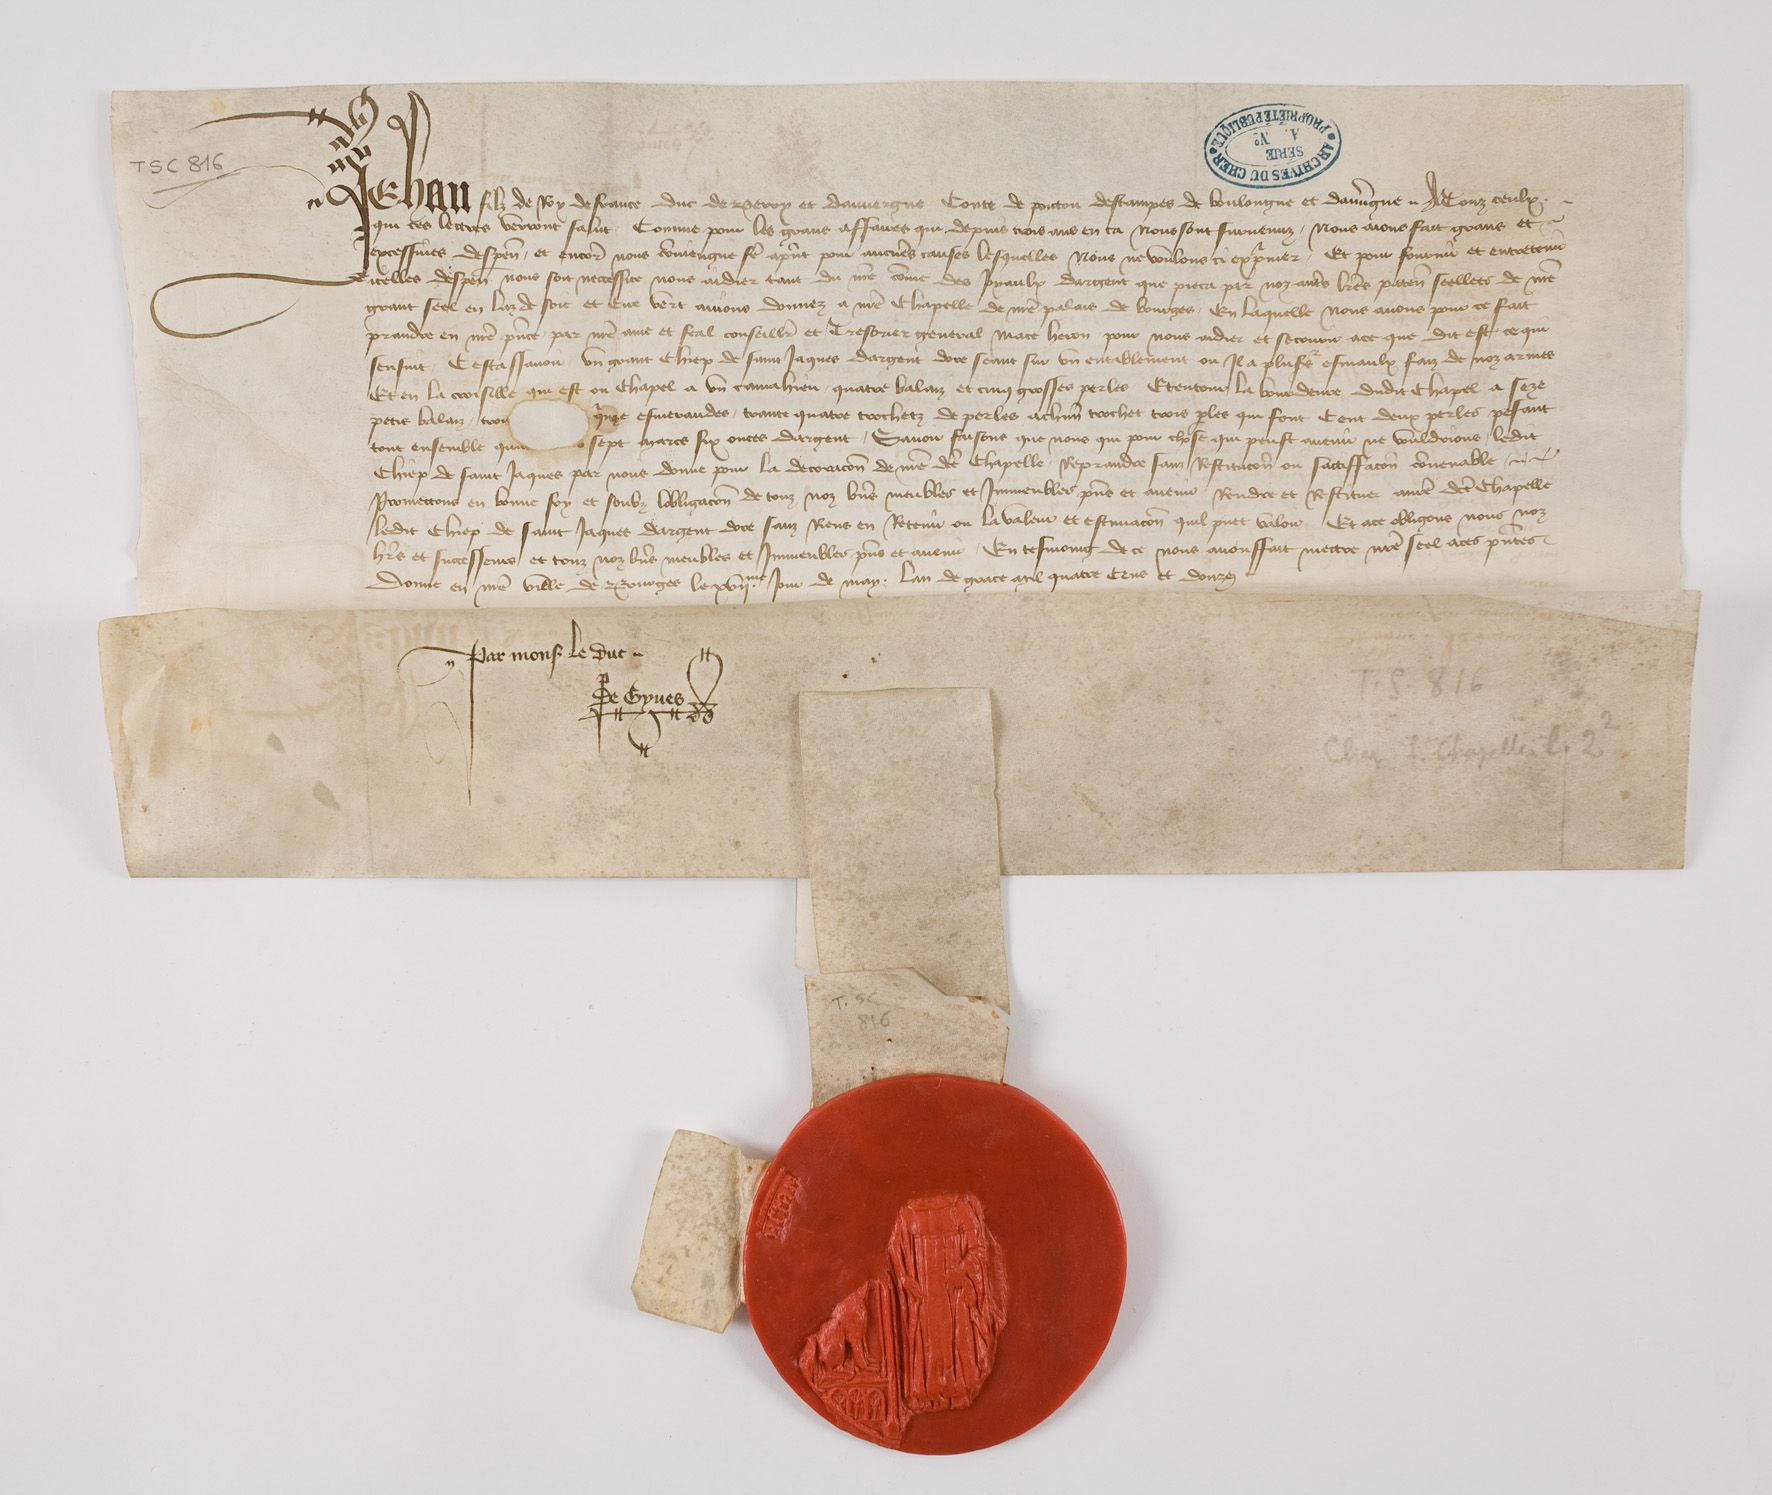 T S C 816
ARCHIVES DU CHER • PROPRIÉTÉ PUBLIQUE •
SÉRIE
A. N°
Jehan filz de Roy de france duc de Berry et dauvergne Conte de poitou destampes de boulongne et dauvgne A Touz ceulx
qui ces lettres verront salut Comme pour les grans affaires qui depuis trois ans en ca nous sont survenuz nous aions fait grans et
excessives despen et encor nous conviengne fe aput pour aucunes causes lesquelles nous ne voulons ci exprimer Et pour fournir et entretenir
icelles despen nous soit necessite nous aidier tant du nre come des joyaulx dargent que pieca par noz autres lres paten seellees de nre
grant seel en laz de soie et cire vert avions donnez a nre Chapelle de nre palais de bourges En laquelle nous avons pour ce fait
prandre en nre pnce par nre ame et feal conseillr et Tresorier general Mace heron pour nous aidier et secourir ace que dit est ce qui
sensuit Cestassavoir un grant Chiep de saint Jaques dargent dore seant sur un entablement ou Il a plus esmaulx faiz de noz armes
Et en la croisille qui est ou Chapel a un camahieu quatre balaiz et cinq grosses perles Et entour la bourdeure dudit Chapel a seze
petis balaiz esmeraudes trante quatre trochetz de perles achun trochet trois ples qui font Cent deux perles pesant
tout ensemble sept marcs six onces dargent Savoir faisons que nous qui pour chose qui peust avenir ne vouldrions ledit
Chiep de saint Jaques par nous donne pour la decoracon de nre dce Chapelle Reprandre sanz Restitucon ou satisffacon convenable
Promettons en bonne foy et soubz lobligacon de touz noz bns meubles et Immeubles pns et avenir Rendre et Restituer anre dce Chapelle
ledit Chiep de saint Jaques dargent dore sanz Riens en Retenir ou la valeur et estimacon quil puet valoir Et ace obligons nous noz
hrs et successeurs et touz noz bns meubles et Immeubles pns et avenir En tesmoing de ce nous avons fait mectre nre seel aces pntes
Donne en nre ville de Bourges le xvii me Jour de may Lan de grace mil quatre Cens et douze
Par mons le duc
De Gynes
T. S. 816
Chapelle l. 2 2
T. SC
816